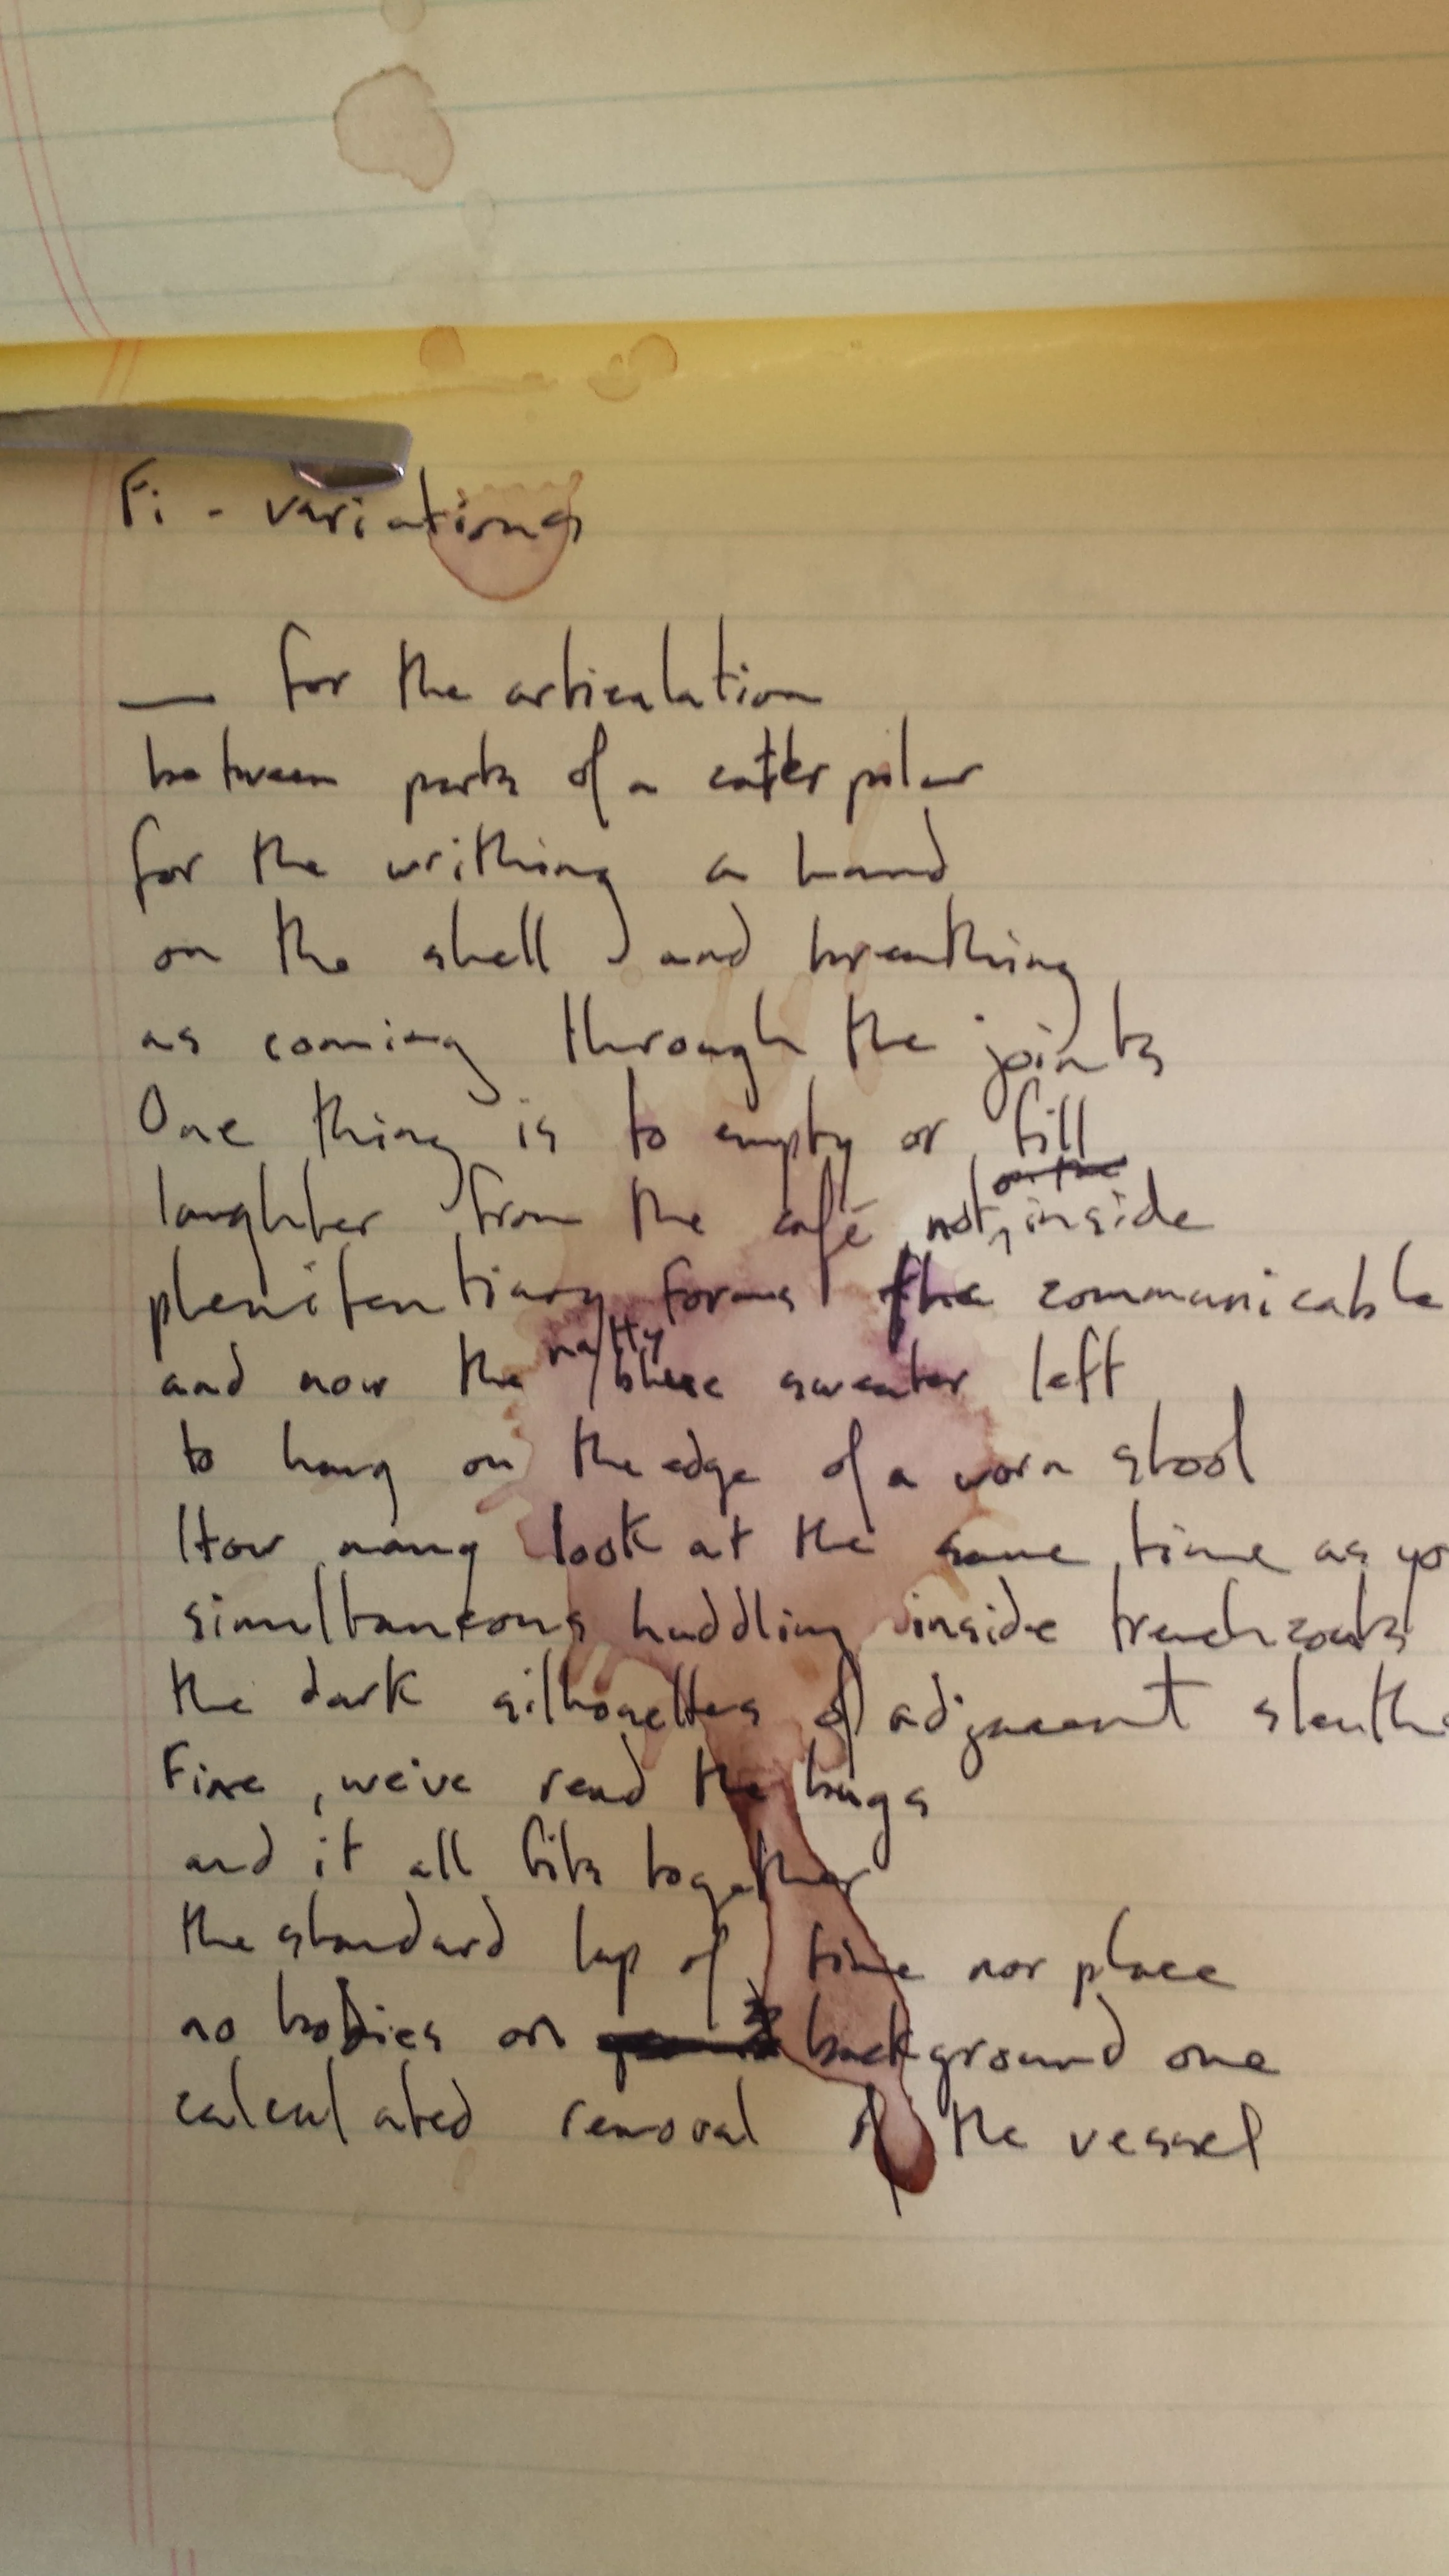 Fi - variations
— for the articulation
between parts of a caterpilar
for the writhing a hand
on the shell, and breathing
as coming through the joints
One thing is to empty or fill
laughter from the café, not, inside
plenitentiary forms the communicable
and now the natty blue sweater left
to hang on the edge of a worn stool
How many look at the same time as yo
simultaneous huddling inside trenchcoats
the dark silhouettes of adjacent sleuths
Fine, we've read the bugs
and it all fits together
the standard lap of time nor place
no bodies on background one
calculated removal of the vessel